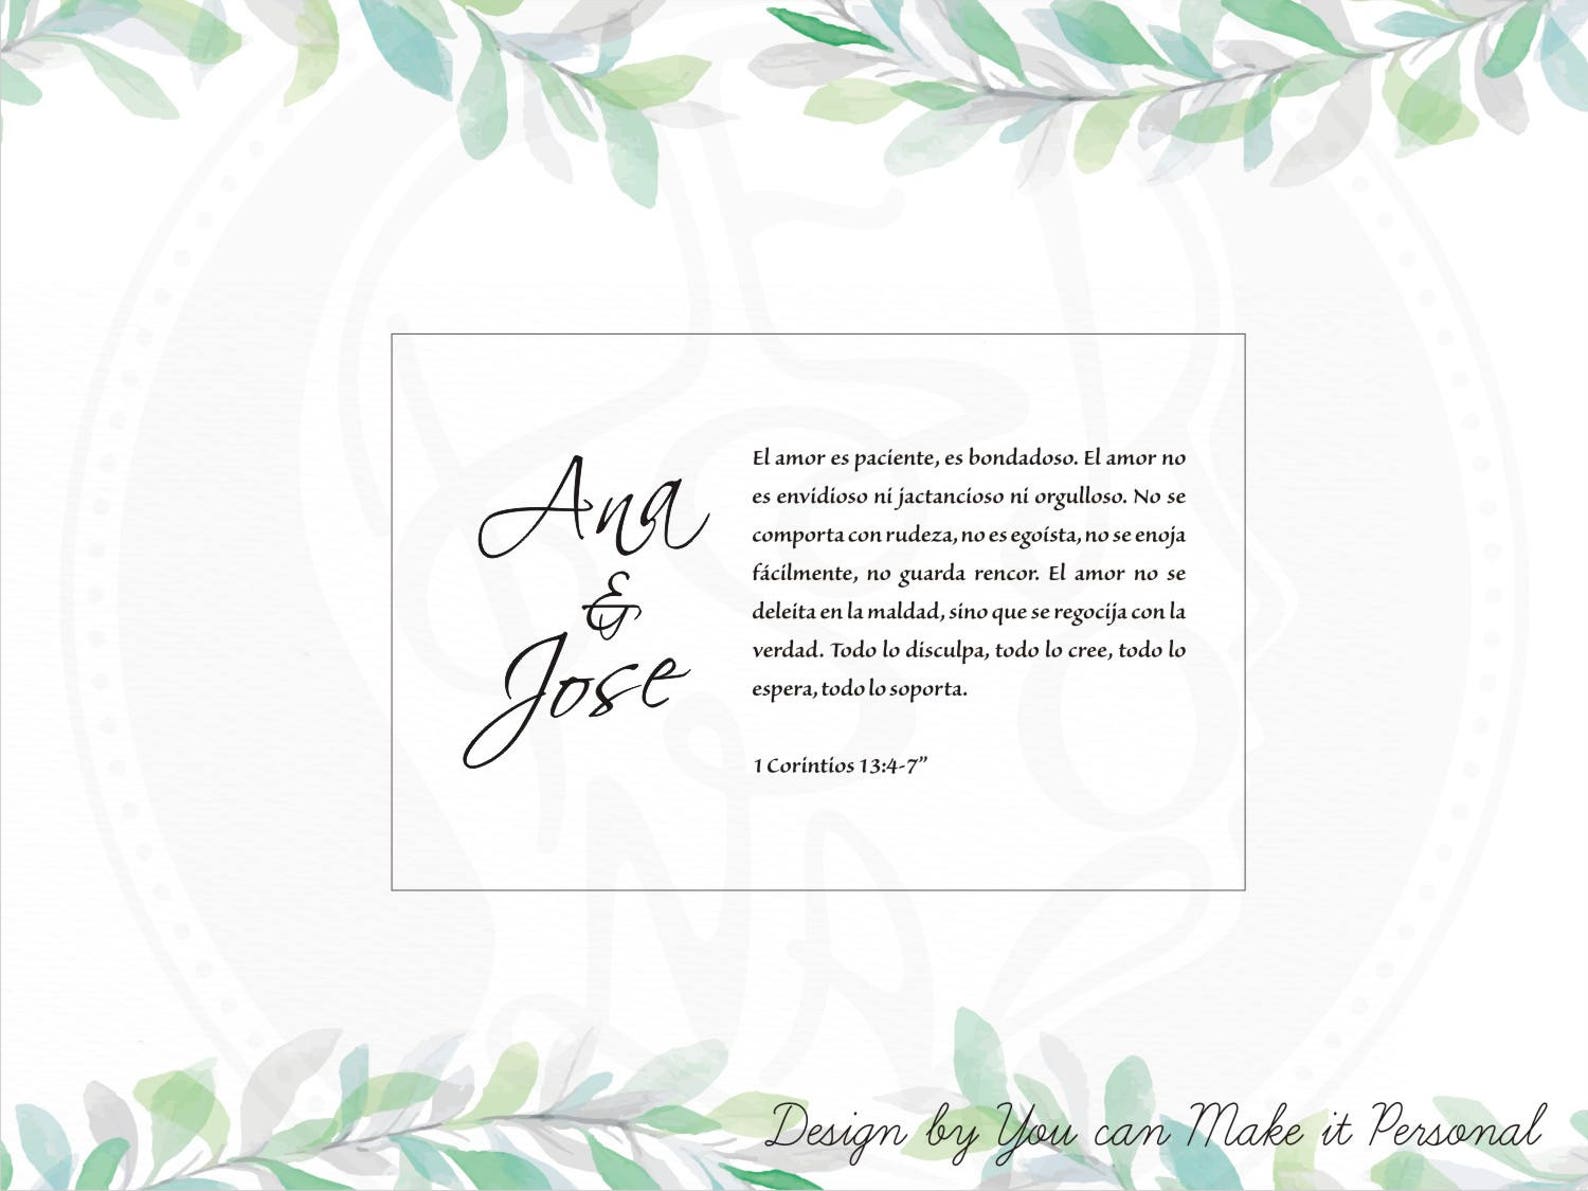 Ana
&
Jose
El amor es paciente, es bondadoso. El amor no
es envidioso ni jactancioso ni orgulloso. No se
comporta con rudeza, no es egoísta, no se enoja
fácilmente, no guarda rencor. El amor no se
deleita en la maldad, sino que se regocija con la
verdad. Todo lo disculpa, todo lo cree, todo lo
espera, todo lo soporta.
1 Corintios 13:4-7”
Design by You can Make it Personal